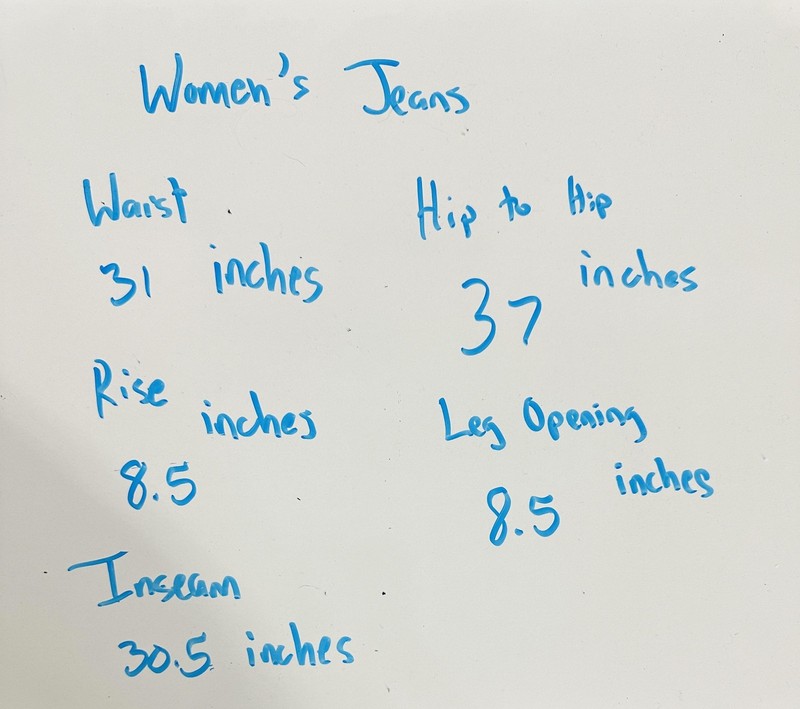 Women's Jeans
Waist
31 inches
Hip to Hip
37 inches
Rise
8.5 inches
Leg Opening
8.5 inches
Inseam
30.5 inches